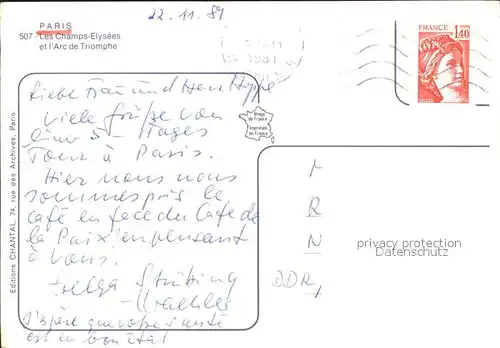 PARIS
507 - Les Champs-Elysées
et l'Arc de Triomphe
22.11.81
22-11
1981
FRANCE
1,40
Liebe Frau und Herr
viele Grüße von
5-Tages
Tour à Paris.
Hier nous nous
sommes pris le
café en face du Café de
la Paix en pensant
à vous.
Helga
J'espère que votre santé
est en bon état
Image
de France
Imprimé
en France
F
R
N
DDR
privacy protection
Datenschutz
Editions CHANTAL, 74, rue des Archives, Paris